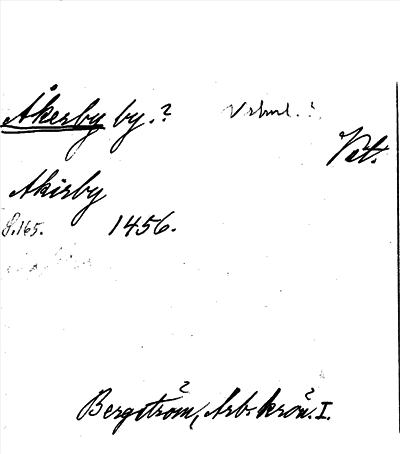 Åkerby by. ?
Vst.
Akirby
S. 165. 1456.
Bergström, Arb. krön. I.